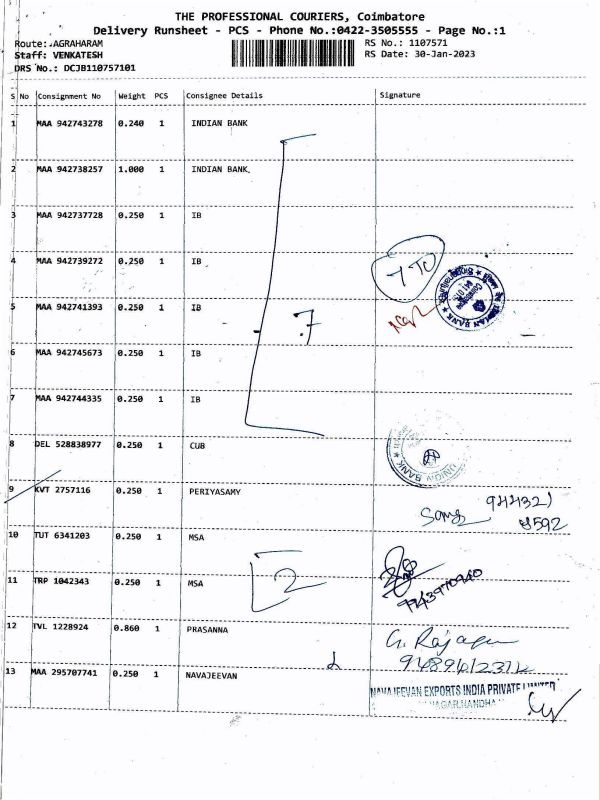 THE PROFESSIONAL COURIERS, Coimbatore
Delivery Runsheet - PCS - Phone No.:0422-3505555 - Page No.:1
Route: AGRAHARAM RS No.: 1107571
Staff: VENKATESH RS Date: 30-Jan-2023
DRS No.: DCJB110757101
S No Consignment No Weight PCS Consignee Details Signature
1 MAA 942743278 0.240 1 INDIAN BANK
2 MAA 942738257 1.000 1 INDIAN BANK.
3 MAA 942737728 0.250 1 IB
4 MAA 942739272 0.250 1 IB
5 MAA 942741393 0.250 1 IB
7
6 MAA 942745673 0.250 1 IB
7 MAA 942744335 0.250 1 IB
8 DEL 528838977 0.250 1 CUB
UNION BANK
9 KVT 2757116 0.250 1 PERIYASAMY
10 TUT 6341203 0.250 1 MSA
11 TRP 1042343 0.250 1 MSA 2
12 TVL 1228924 0.860 1 PRASANNA
13 MAA 295707741 0.250 1 NAVAJEEVAN
NAVAJEEVAN EXPORTS INDIA PRIVATE LIMITED